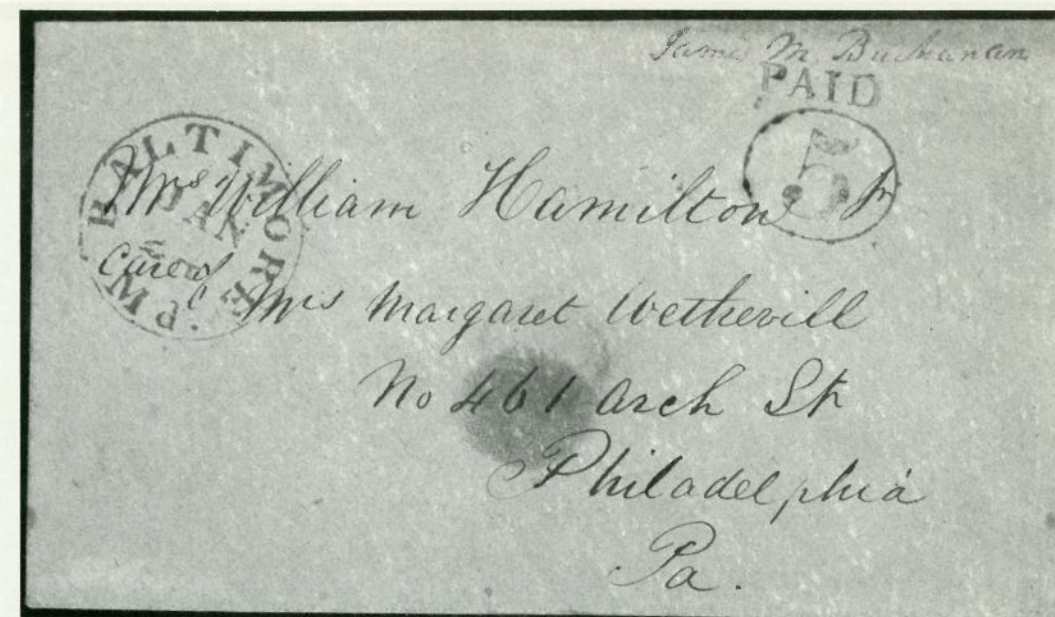 James M. Buchanan
PAID
5
BALTIMORE
JAN
P.M.
Mrs William Hamilton Jr
Care of Mrs Margaret Wetherill
No 461 Arch St
Philadelphia
Pa.